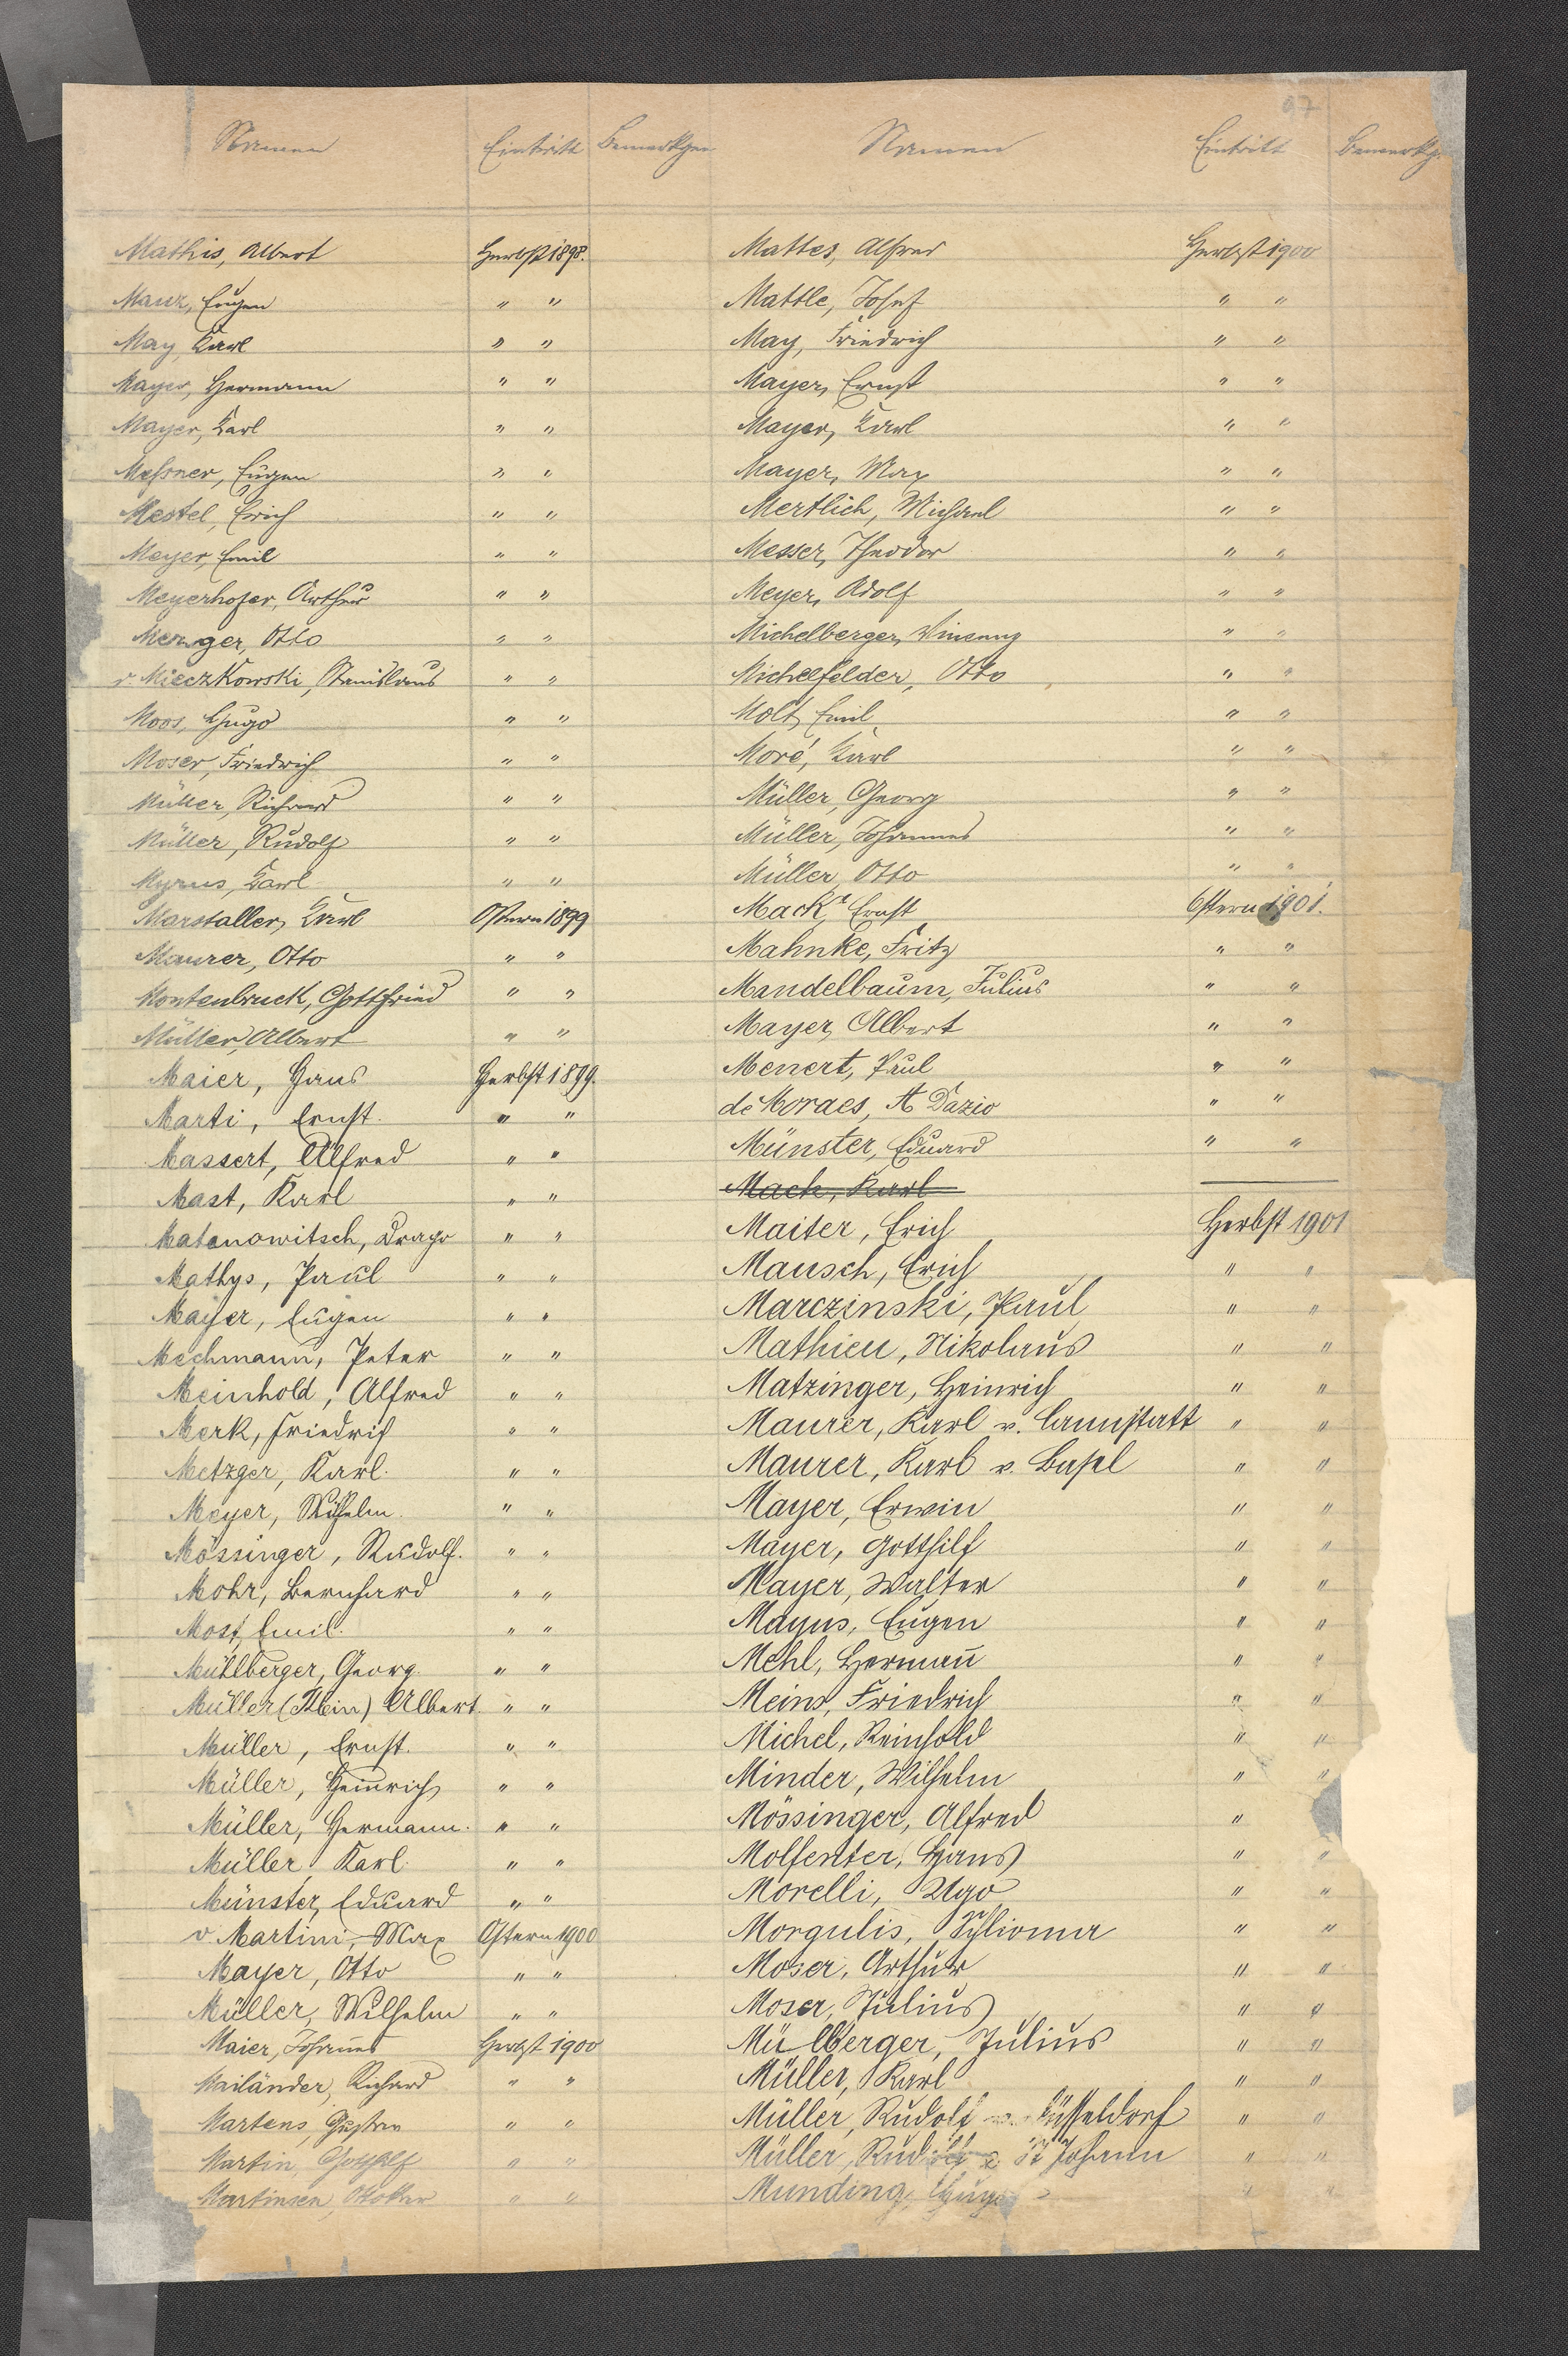 97
Namen Eintritt Bemerkgen
Mathis, Albert Herbst 1898.
Manz, Eugen " "
May, Karl " "
Mayer, Hermann " "
Mayer, Karl " "
Meßner, Eugen " "
Mestel, Erich " "
Meyer, Emil " "
Meyerhofer, Arthur " "
Menger, Otto " "
v. Mieczkowski, Stanislaus " "
Moos, Hugo " "
Moser, Friedrich " "
Müller, Richard " "
Müller, Rudolf " "
Myrus, Karl " "
Marstaller, Karl Ostern 1899
Maurer, Otto " "
Montenbruck, Gottfried " "
Müller, Albert " "
Maier, Hans Herbst 1899.
Marti, Ernst. " "
Massert, Alfred " "
Mast, Karl " "
Matanowitsch, Drago " "
Mathys, Paul " "
Mayer, Eugen " "
Mechmann, Peter " "
Meinhold, Alfred " "
Merk, Friedrich " "
Metzger, Karl. " "
Meyer, Wilhelm. " "
Mössinger, Rudolf. " "
Mohr, Bernhard " "
Most, Emil. " "
Mühlberger, Georg. " "
Müller (Klein) Albert. " "
Müller, Ernst. " "
Müller, Heinrich " "
Müller, Hermann. " "
Müller, Karl. " "
Münster, Eduard " "
v Martini, Max Ostern 1900
Mayer, Otto " "
Müller, Wilhelm " "
Maier, Johannes Herbst 1900
Mailänder, Richard " "
Martens, Gustav " "
Martin, Gotthilf " "
Martinsen, " "
Namen Eintritt Bemerkg.
Mattes, Alfred Herbst 1900
Mattle, Josef " "
May, Friedrich " "
Mayer, Ernst " "
Mayer, Karl " "
Mayer, Max " "
Mertlich, Michael " "
Messer, Theodor " "
Meyer, Adolf " "
Michelberger, Vinzenz " "
Michelfelder, Otto " "
Molt, Emil " "
Moré, Karl " "
Müller, Georg " "
Müller, Johannes " "
Müller, Otto " "
Mack, Ernst Ostern 1901.
Mahnke, Fritz " "
Mandelbaum, Julius " "
Mayer, Albert " "
Menert, Paul " "
de Moraes, A Dazio " "
Münster, Eduard " "
Mack, Karl
Maiter, Erich Herbst 1901
Mansch, Erich " "
Marczinski, Paul " "
Mathieu, Nikolaus " "
Matzinger, Heinrich " "
Maurer, Karl v. Cannstatt " "
Maurer, Karl v. Basel " "
Mayer, Erwin " "
Mayer, Gotthilf " "
Mayer, Walter " "
Mayus, Eugen " "
Mehl, Hermann " "
Meins, Friedrich " "
Michel, Reinhold " "
Minder, Wilhelm " "
Mössinger, Alfred "
Molfenter, Hans " "
Morelli, Ugo " "
Morgulis, Schlioma " "
Moser, Arthur " "
Moser, Julius " "
Mülberger, Julius " "
Müller, Karl " "
Müller, Rudolf v. Düsseldorf " "
Müller, Rudolf v. St Johann " "
Munding, Hugo " "